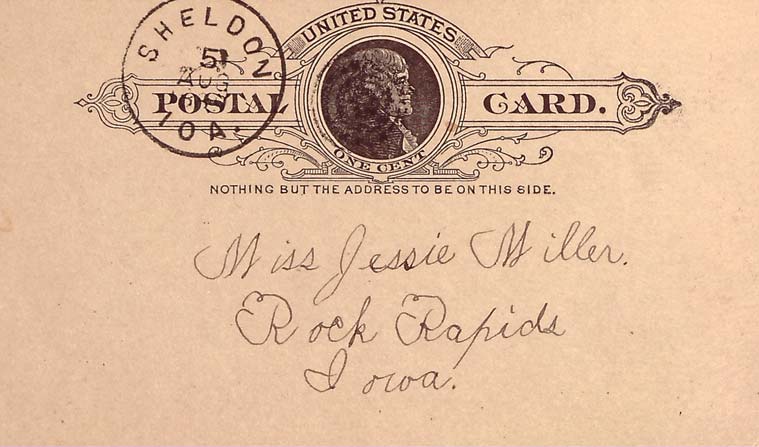 UNITED STATES
SHELDON
5
AUG
IOA.
POSTAL CARD.
ONE CENT
NOTHING BUT THE ADDRESS TO BE ON THIS SIDE.
Miss Jessie Miller.
Rock Rapids
Iowa.